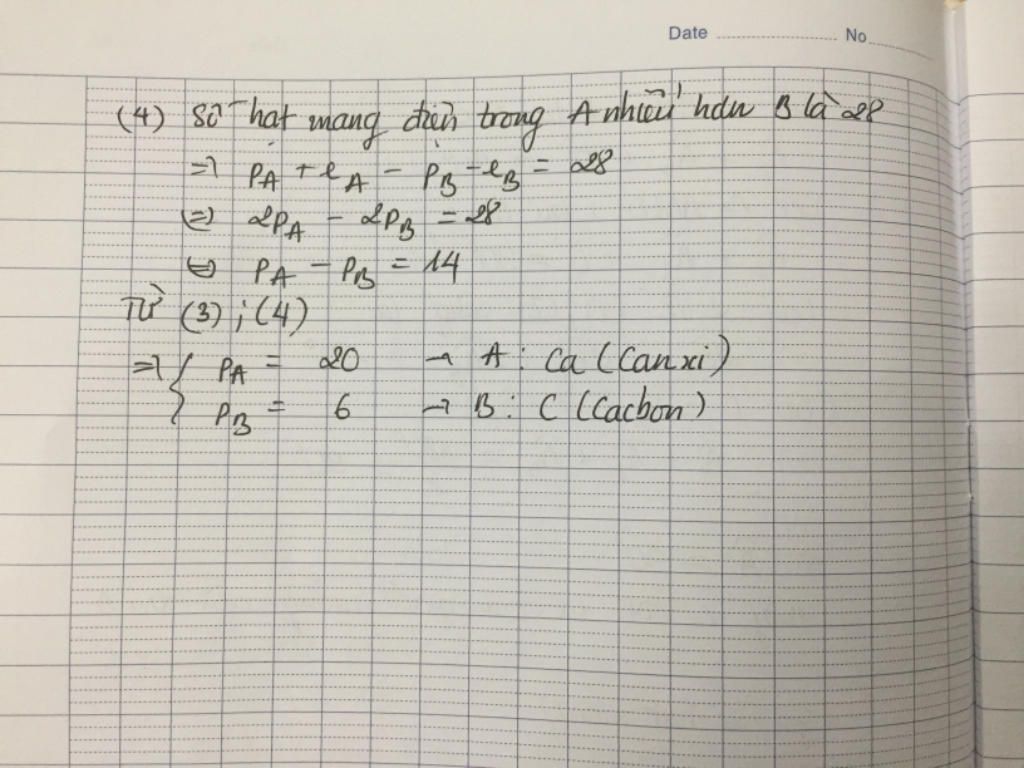 Date No
(4) Số hạt mang điện trong A nhiều hơn B là 28
=> PA + eA - PB - eB = 28
(=) 2PA - 2PB = 28
(=) PA - PB = 14
Từ (3) ; (4)
=> { PA = 20 → A : Ca (Canxi)
PB = 6 → B : C (Cacbon)